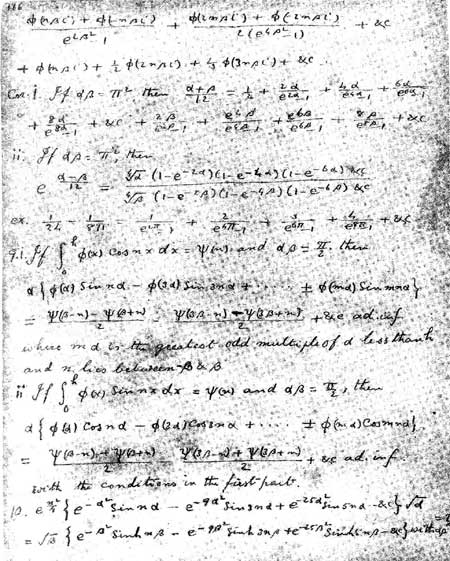 186
φ(nβi) + φ(-nβi) / e^{2β²}-1 + φ(2nβi) + φ(-2nβi) / 2(e^{4β²}-1) + &c
+ φ(nβi) + ½ φ(2nβi) + ⅓ φ(3nβi) + &c
Cor. i. If αβ = π² then (α+β)/12 = ½ + 2α/(e^{2α}-1) + 4α/(e^{4α}-1) + 6α/(e^{6α}-1)
+ 8α/(e^{8α}-1) + &c + 2β/(e^{2β}-1) + 4β/(e^{4β}-1) + 6β/(e^{6β}-1) + 8β/(e^{8β}-1) + &c
ii. If αβ = π², then
e^{(α-β)/12} = ∜α (1-e^{-2α})(1-e^{-4α})(1-e^{-6α}) &c / ∜β (1-e^{-2β})(1-e^{-4β})(1-e^{-6β}) &c
ex. 1/24 - 1/8π = 1/(e^{2π}-1) + 2/(e^{4π}-1) + 3/(e^{6π}-1) + 4/(e^{8π}-1) + &c
9.i. If ∫₀^h φ(x) Cos nx dx = ψ(n) and αβ = π/2, then
α{φ(α) Sin nα - φ(3α) Sin 3nα + ..... ± φ(mα) Sin mnα}
= (ψ(β-n) - ψ(β+n))/2 - (ψ(3β-n) - ψ(3β+n))/2 + &c ad. inf
where mα is the greatest odd multiple of α less than h
and n lies between -β & β
ii If ∫₀^h φ(x) Sin nx dx = ψ(n) and αβ = π/2, then
α{φ(α) Cos nα - φ(3α) Cos 3nα + ..... ± φ(mα) Cos mnα}
= (ψ(β-n) + ψ(β+n))/2 - (ψ(3β-n) + ψ(3β+n))/2 + &c ad. inf.
with the conditions in the first part.
10. e^{n²/4} {e^{-α²} Sin nα - e^{-9α²} Sin 3nα + e^{-25α²} Sin 5nα - &c} √α
= √β {e^{-β²} Sinh nβ - e^{-9β²} Sinh 3nβ + e^{-25β²} Sinh 5nβ - &c} with αβ